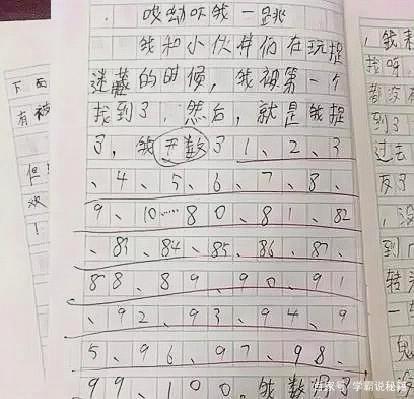 哎呦吓我一跳
我和小伙伴们在玩捉
迷藏的时候,我被第一个
找到了,然后,就是我捉
了,我开数了1、2、3
、4、5、6、7、8、
9、10……80、81、82
、83、84、85、86、87、
88、89、90、91
、92、93、94、9
5、96、97、98、
99、100。我数完了
下面
有被
但
欢
!
,我来
找呀
都没
到了
过去
反了
,没
到
转头
一
鬼
百家号/学霸说秘籍